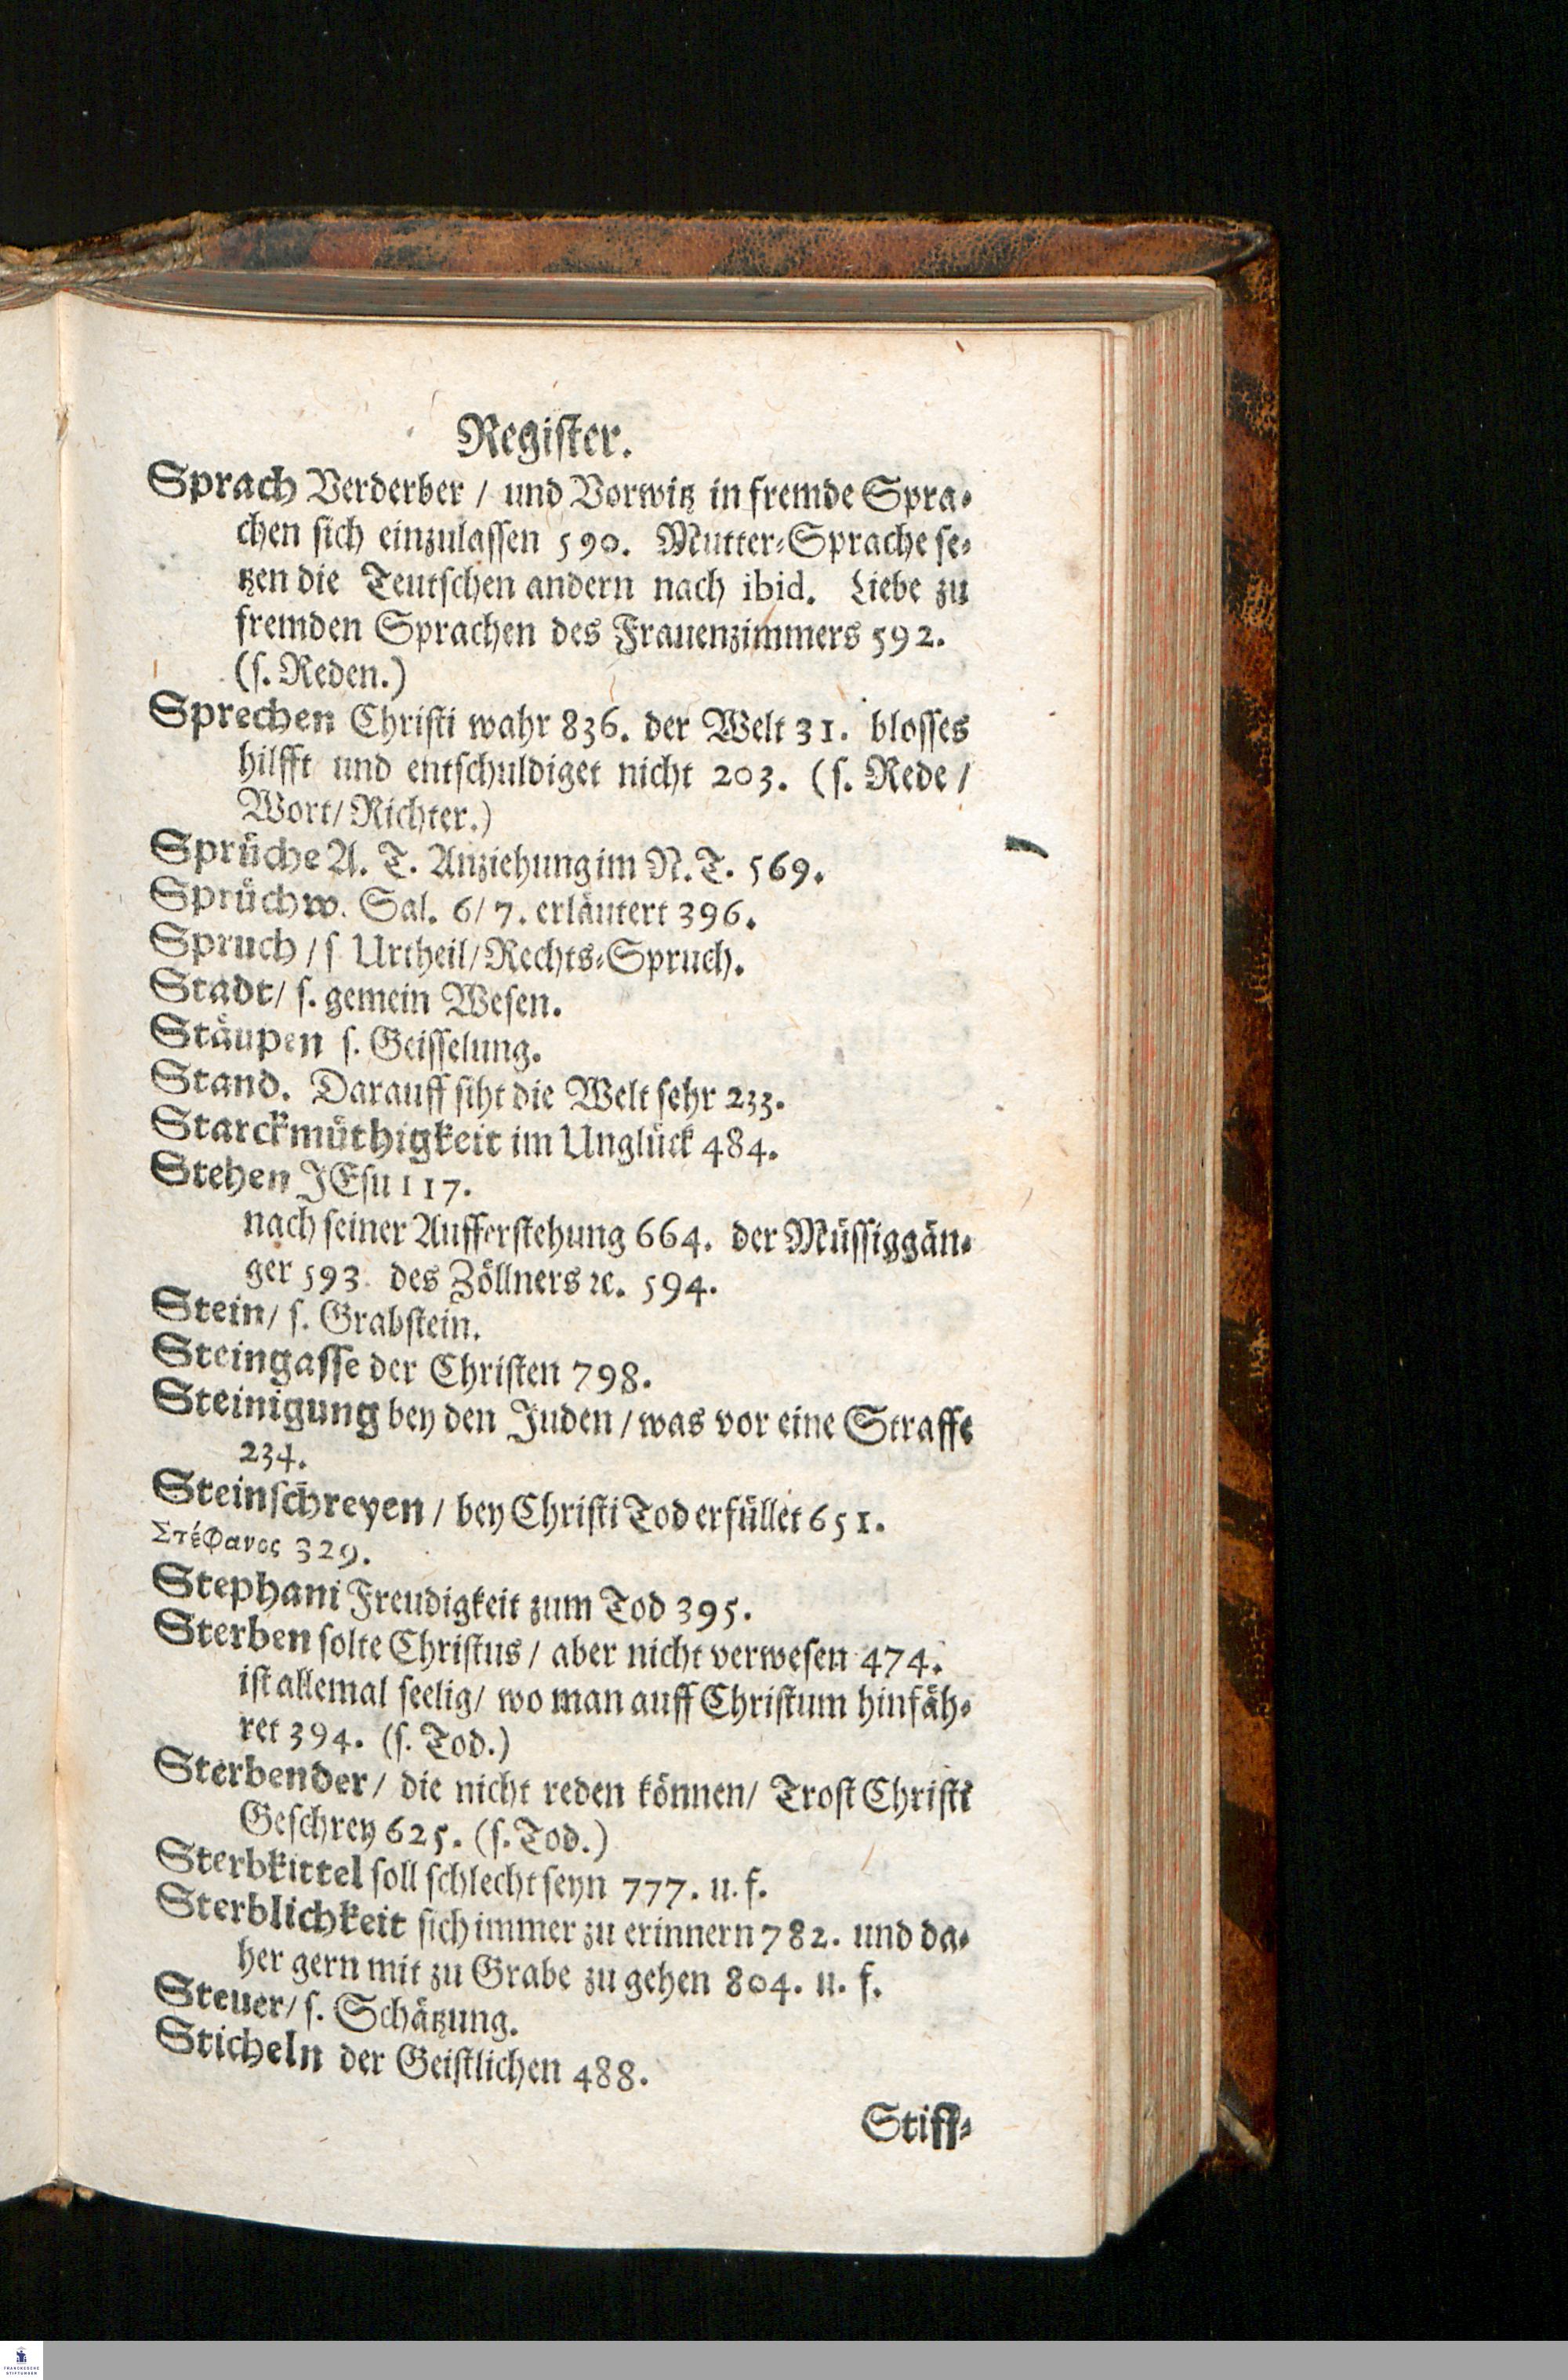 Register.
Sprach Verderber / und Vorwitz in fremde Spra-
chen sich einzulassen 590. Mutter-Sprache se-
tzen die Teutschen andern nach ibid. Liebe zu
fremden Sprachen des Frauenzimmers 592.
(s. Reden.)
Sprechen Christi wahr 836. der Welt 31. blosses
hilfft und entschuldiget nicht 203. (s. Rede /
Wort/ Richter.)
Sprüche A. T. Anziehung im N. T. 569.
Sprüchw. Sal. 6/ 7. erläutert 396.
Spruch / s Urtheil/ Rechts-Spruch.
Stadt/ s. gemein Wesen.
Stäupen s. Geisselung.
Stand. Darauff siht die Welt sehr 233.
Starckmüthigkeit im Unglück 484.
Stehen JEsu 117.
nach seiner Aufferstehung 664. der Müssiggän-
ger 593. des Zöllners ꝛc. 594.
Stein/ s. Grabstein.
Steingasse der Christen 798.
Steinigung bey den Juden / was vor eine Straffe
234.
Steinschreyen / bey Christi Tod erfüllet 651.
Στέφανος 329.
Stephani Freudigkeit zum Tod 395.
Sterben solte Christus / aber nicht verwesen 474.
ist allemal seelig/ wo man auff Christum hinfäh-
ret 394. (s. Tod.)
Sterbender/ die nicht reden können/ Trost Christi
Geschrey 625. (s. Tod.)
Sterbkittel soll schlecht seyn 777. u. f.
Sterblichkeit sich immer zu erinnern 782. und da-
her gern mit zu Grabe zu gehen 804. u. f.
Steuer/ s. Schätzung.
Sticheln der Geistlichen 488.
Stiff-
FRANCKESCHE
STIFTUNGEN